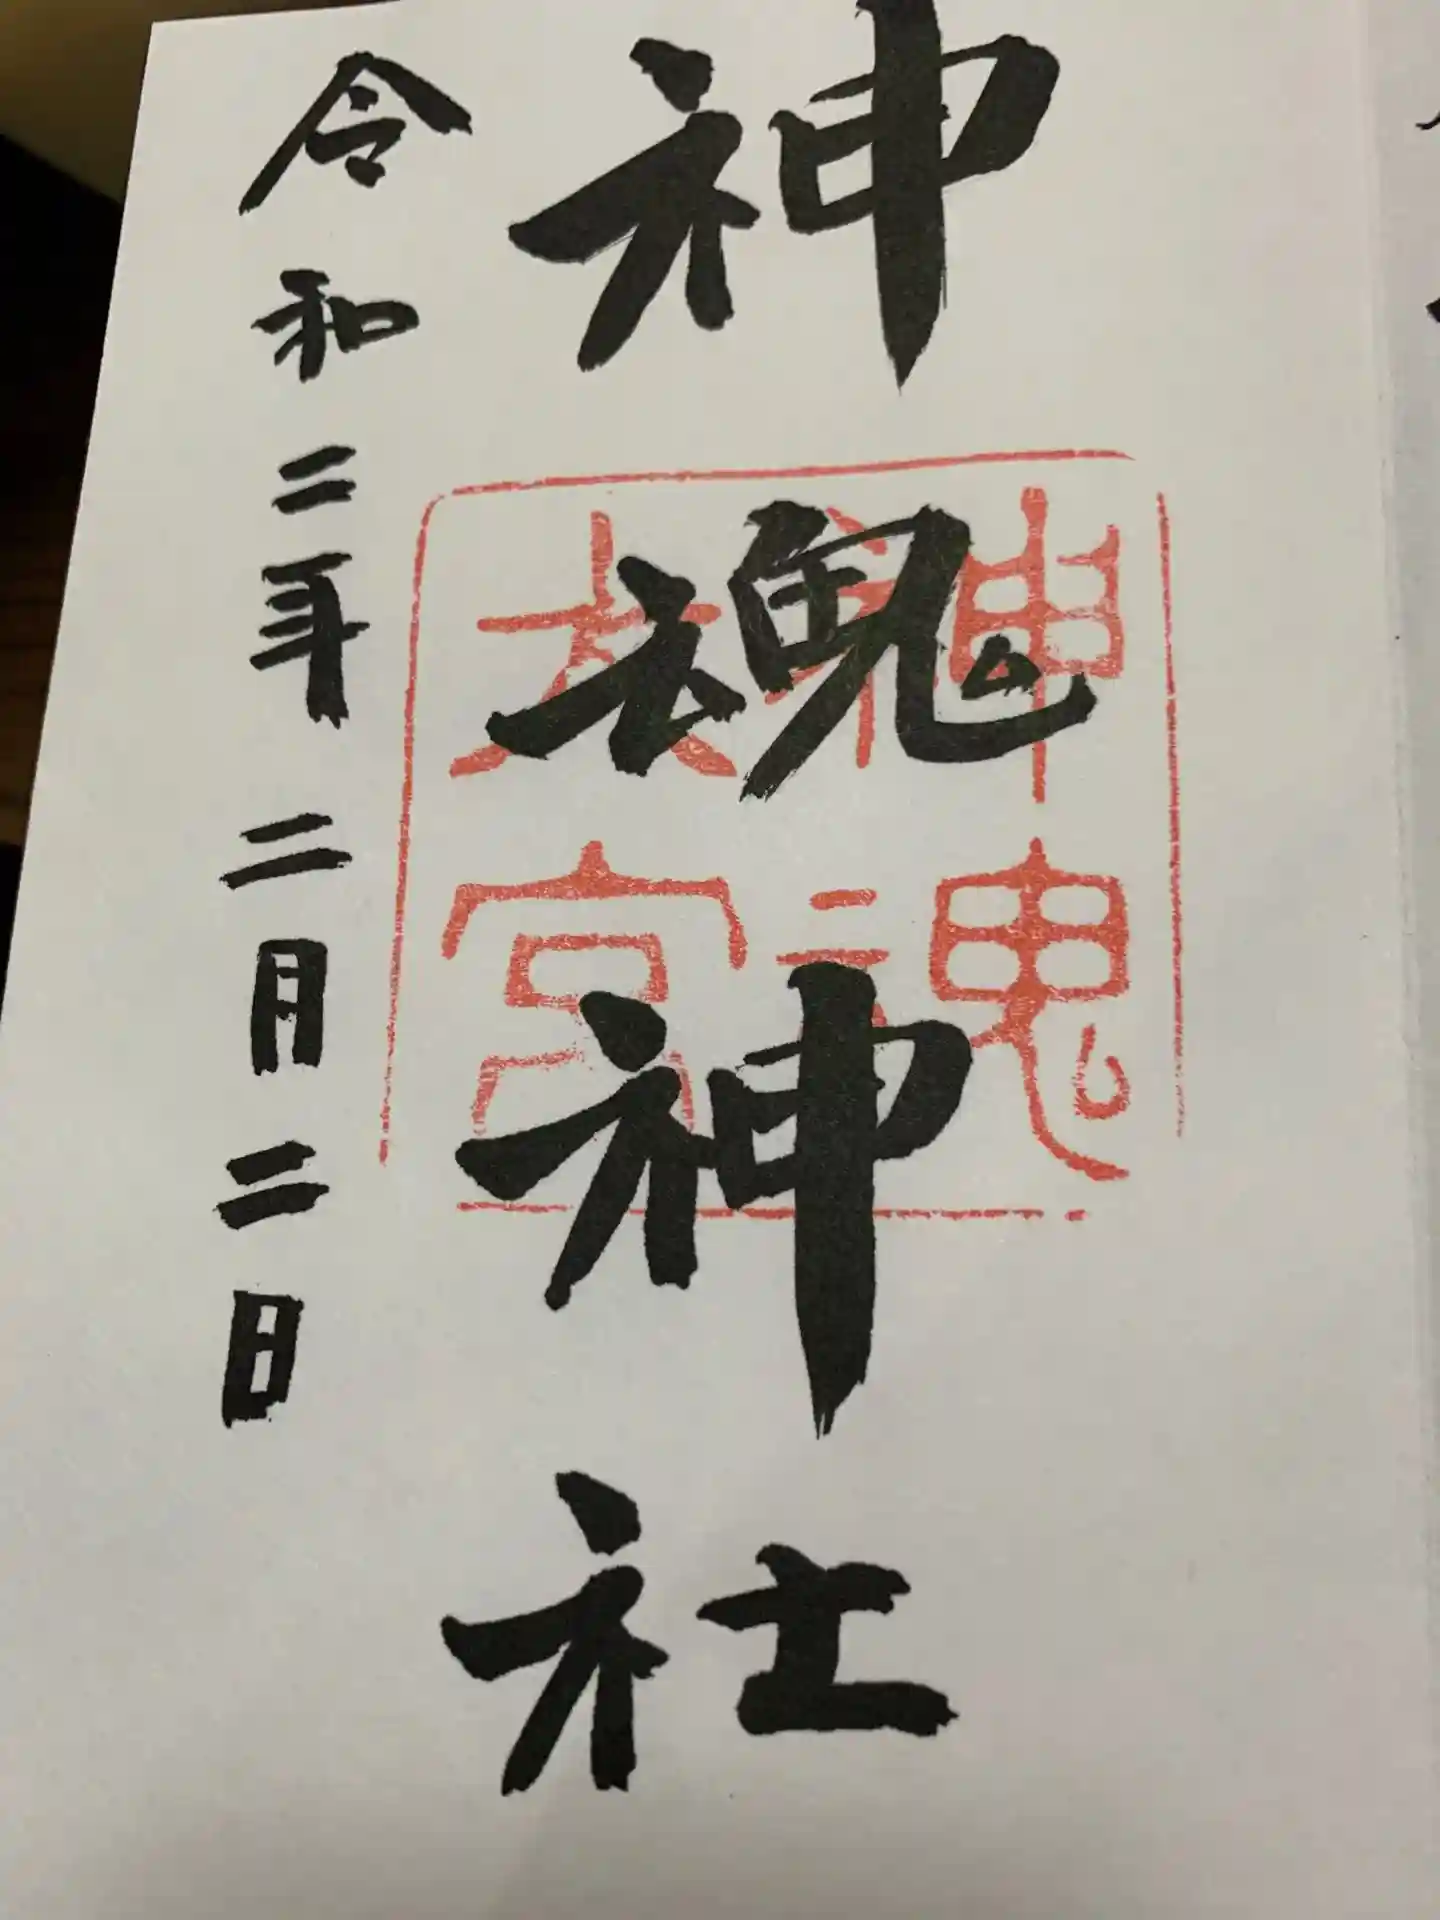 神魂神社
神魂
大宮
令和二年二月二日